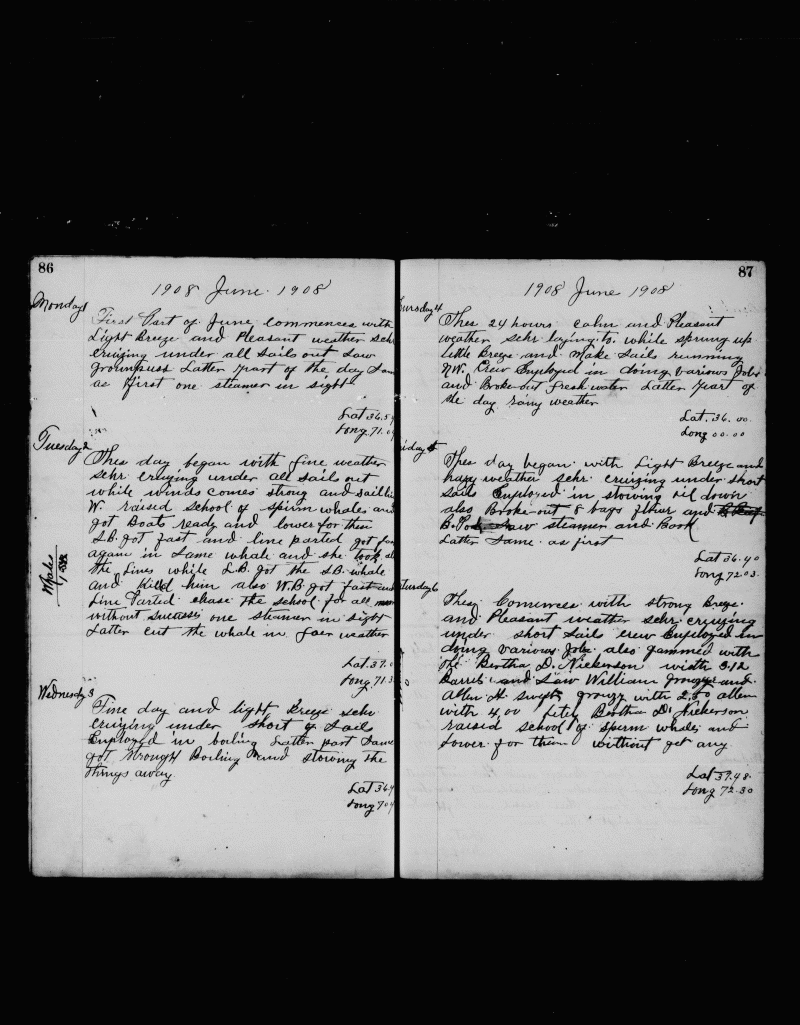 86
1908 June 1908
Monday 1
First Part of June Commences with
Light Breeze and Pleasant weather schr
cruizing under all sails out Saw
Latter part of the day Sam
as first one steamer in sight
Lat 36.5
Long 71.0
Tuesday 2
Thes day began with fine weather
schr cruizing under all sails out
while winds comes strong and sail
W. raised school of spirm whales and
got Boats ready and lower for them
S.B. got fast and line parted got fas
again in Same whale and she took al
the Lines while L.B. got the S.B. whale
and killd him also W.B. got fast and
Line Parted chase the school for all
without success one steamer in sight
Latter cut the whale in faer weather
Lat. 37.0
Long 71.3
Wednesday 3
Fine day and light Breeze schr
cruizing under short of Sails
Employed in boiling Latter part Same
got through Boiling and stowing the
things away
Lat 36
Long 70
87
1908 June 1908
ursday 4
Thes 24 hours calm and Pleasant
weather schr laying to while sprung up
little Breeze and Make Sails running
NW. Crew Employed in doing Various Jobs
and Broke out fresh water Latter part of
the day rainy weather
Lat. 36.00
Long 00.00
iday 5
Thes day began with Light Breeze and
hazy weather schr. cruizing under short
Sails Employed in stowing oil down
also Broke out 8 bags flour and
B. Saw steamer and Bark
Latter Same as first
Lat 36.40
Long 72.03
turday 6
Thes Comences with strong Breze
and Pleasant weather schr. cruizing
under short Sail crew Employed in
doing various Jobs also gammed with
the Bertha D. Nickerson with 312
Barrels and Saw William
Allen H. with 250 allen
with 4,00 Bertha D. Nickerson
raised school of Sperm whales and
Lower for them without get any
Lat 37.48
Long 72.30